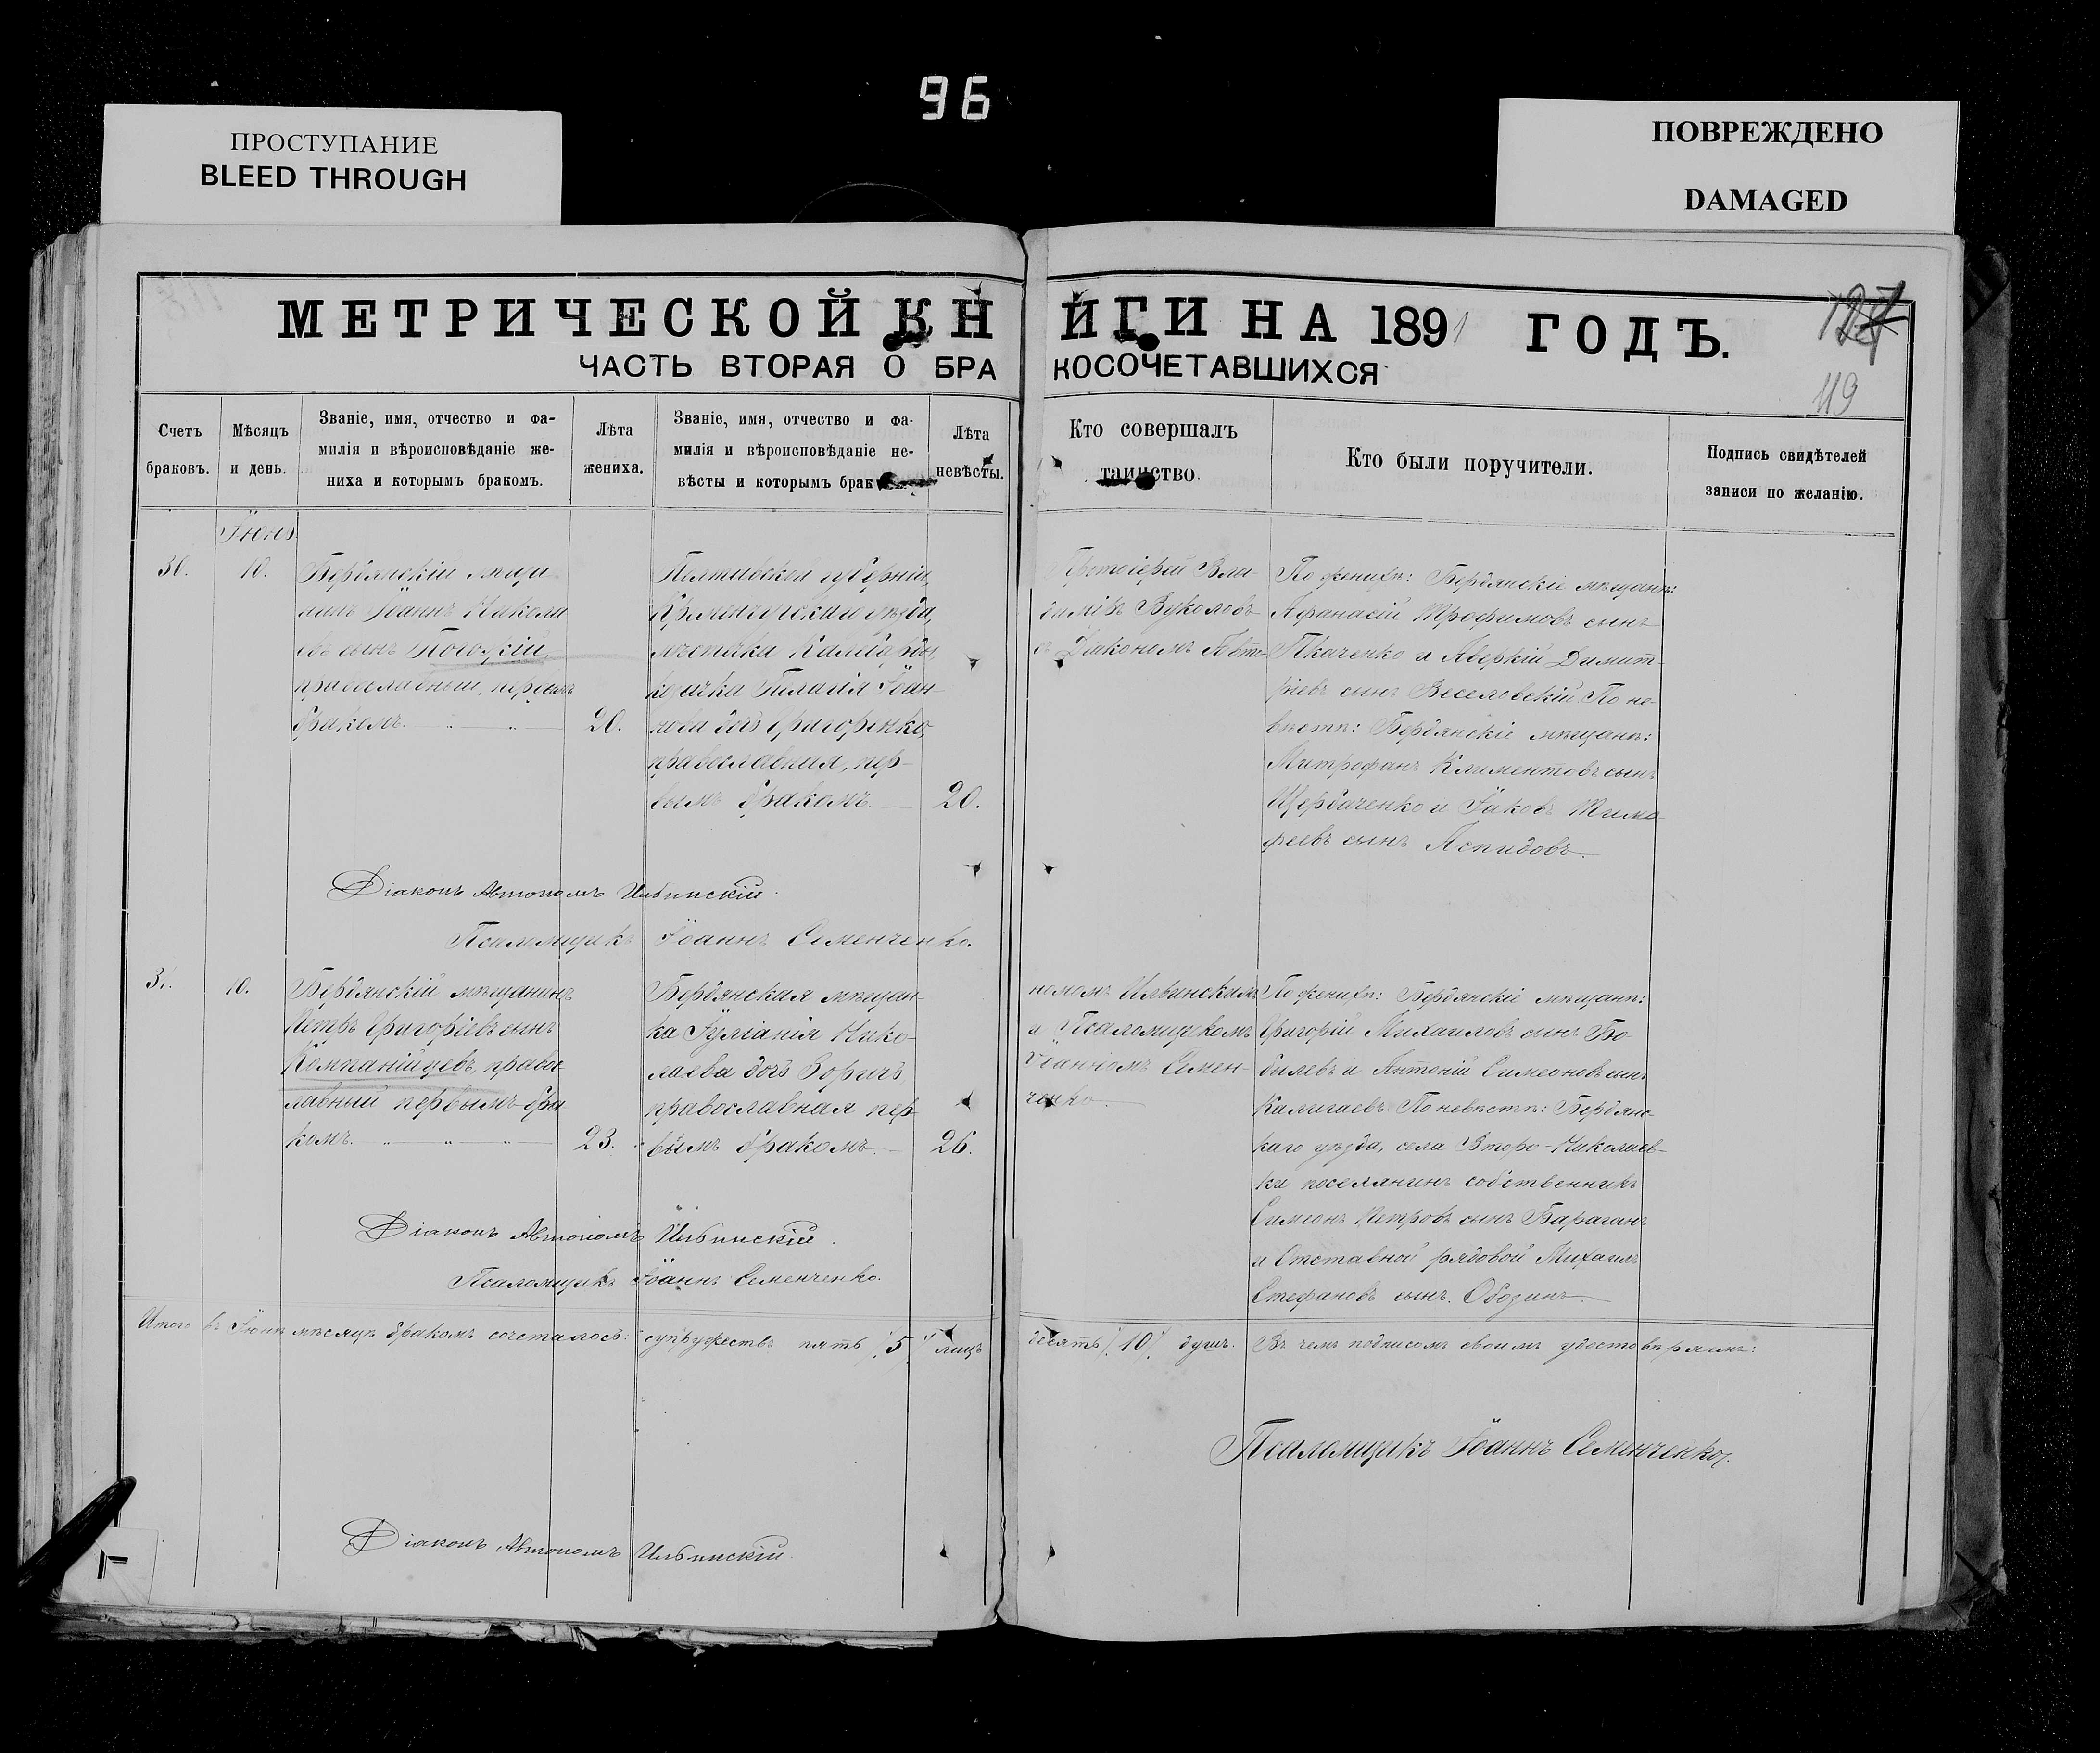 96
ПРОСТУПАНИЕ
BLEED THROUGH
ПОВРЕЖДЕНО
DAMAGED
МЕТРИЧЕСКОЙ КНИГИ НА 1891 ГОДЪ.
127
119
ЧАСТЬ ВТОРАЯ О БРАКОСОЧЕТАВШИХСЯ
Счетъ
браковъ.
Мѣсяцъ
и день.
Званіе, имя, отчество и фа-
милія и вѣроисповѣданіе же-
ниха и которымъ бракомъ.
Лѣта
жениха.
Званіе, имя, отчество и фа-
милія и вѣроисповѣданіе не-
вѣсты и которымъ брак
Лѣта
невѣсты.
Кто совершалъ
таинство.
Кто были поручители.
Подпись свидѣтелей
записи по желанію.
30.
10.
Бердянскій мѣща-
нинъ Іоаннъ Никола
евъ сынъ Погоцкій,
православный, первымъ
бракомъ.
20.
Полтавской губерніи,
Кременчугскаго уѣзда,
мѣстечка
козачка Пелагія Іоан-
нова дочь Григоренко,
православная, пер-
вымъ бракомъ.
20.
Протоіерей Вла-
диміръ Вуколовъ
съ Діакономъ Авто-
По женихѣ: Бердянскіе мѣщане:
Афанасій Трофимовъ сынъ
Ткаченко и Аверкій Димит-
ріевъ сынъ Веселовскій По не-
вѣстѣ: Бердянскіе мѣщане:
Митрофанъ Климентовъ сынъ
Щербаченко и Іаковъ Тимо-
феевъ сынъ Аспидовъ.
Діаконъ Автономъ Ильинскій.
Псаломщикъ Іоаннъ Семенченко.
31.
10.
Бердянскій мѣщанинъ
Петръ Григоріевъ сынъ
Компанійцевъ, правос-
лавный первымъ бра-
комъ.
23.
Бердянская мѣщан-
ка Іуліанія Нико-
лаева дочь Зоричъ
православная пер-
вымъ бракомъ.
26.
номомъ Ильинскимъ
и Псаломщикомъ
Іоанномъ Семен-
ченко
По женихѣ: Бердянскіе мѣщане:
Григорій Михаиловъ сынъ Бо-
былевъ и Антоній Симеоновъ сынъ
Калигаевъ. По невѣстѣ: Бердянс-
каго уѣзда, села Второ-Николаев-
ки поселянинъ собственникъ
Симеонъ Петровъ сынъ Бараганъ
и Отставной рядовой Михаилъ
Стефановъ сынъ Обозинъ.
Діаконъ Автономъ Ильинскій.
Псаломщикъ Іоаннъ Семенченко.
Итого въ Іюнѣ мѣсяцѣ бракомъ сочеталось: супружествъ пять /5/ лицъ десять /10/ душъ. Въ чемъ подписомъ своимъ удостовѣряемъ:
Псаломщикъ Іоаннъ Семенченко.
Діаконъ Автономъ Ильинскій.